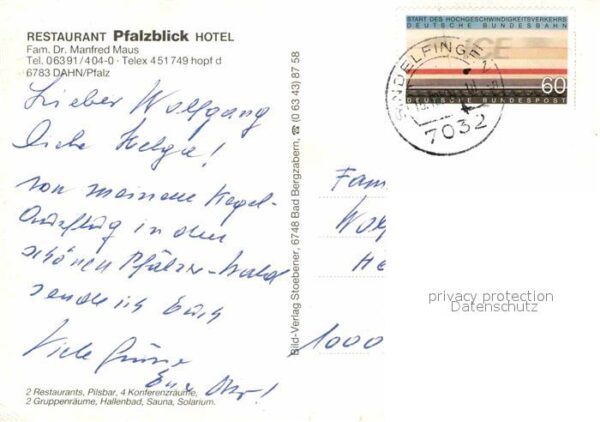 RESTAURANT Pfalzblick HOTEL
Fam. Dr. Manfred Maus
Tel. 06391/404-0 · Telex 451749 hopf d
6783 DAHN/Pfalz
Lieber Wolfgang
liebe Helga!
von meinem Kegel-
Ausflug in den
schönen Pfälzer-Wald
sende ich Euch
Viele Grüsse
Euer
2 Restaurants, Pilsbar, 4 Konferenzräume,
2 Gruppenräume, Hallenbad, Sauna, Solarium.
Bild-Verlag Stoebener, 6748 Bad Bergzabern, ☎ (0 63 43) 87 58
START DES HOCHGESCHWINDIGKEITSVERKEHRS
DEUTSCHE BUNDESBAHN
ICE
60
DEUTSCHE BUNDESPOST
SINDELFINGEN 1
7032
Fam
Wol
He
1000
privacy protection
Datenschutz